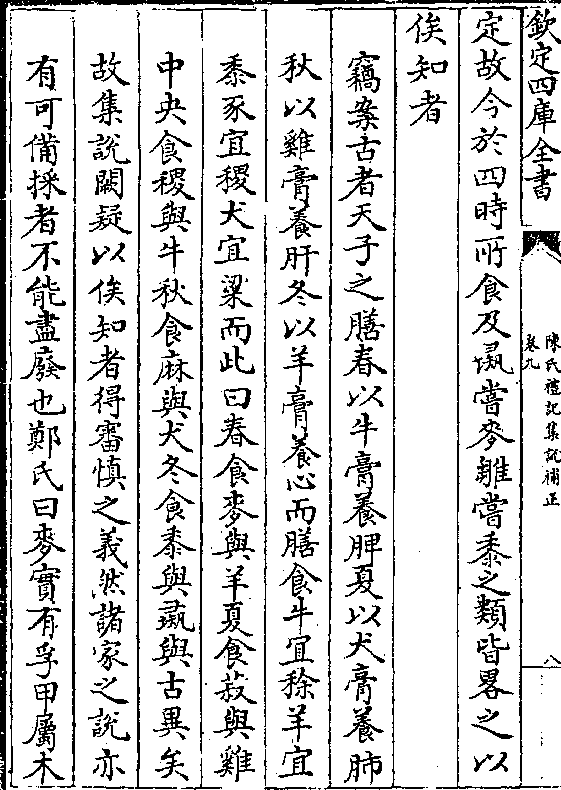 欽定四庫全書
陳氏禮記集說補正
卷九
八
定故今於四時所食及彘嘗麥雛嘗黍之類皆畧之以
俟知者
竊案古者天子之膳春以牛膏養脾夏以犬膏養肺
秋以雞膏養肝冬以羊膏養心而膳食牛宜稌羊宜
黍豕宜稷犬宜粱而此曰春食麥與羊夏食菽與雞
中央食稷與牛秋食麻與犬冬食黍與彘與古異矣
故集說闕疑以俟知者得審慎之義然諸家之說亦
有可備採者不能盡廢也鄭氏曰麥實有孚甲屬木